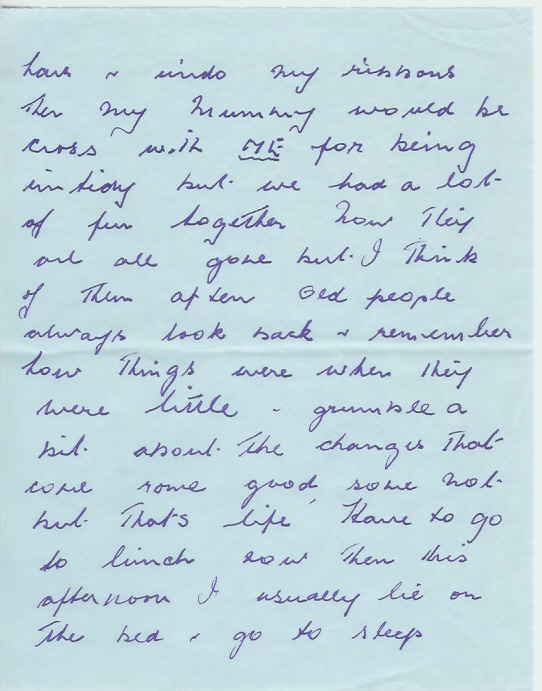 hair & undo my ribbons
then my Mummy would be
cross with ME for being
untidy but we had a lot
of fun together now they
are all gone but I think
of them often Old people
always look back & remember
how things were when they
were little - grumble a
bit about the changes that
come some good, some not
but that's life Have to go
to lunch now then this
afternoon I usually lie on
the bed & go to sleep